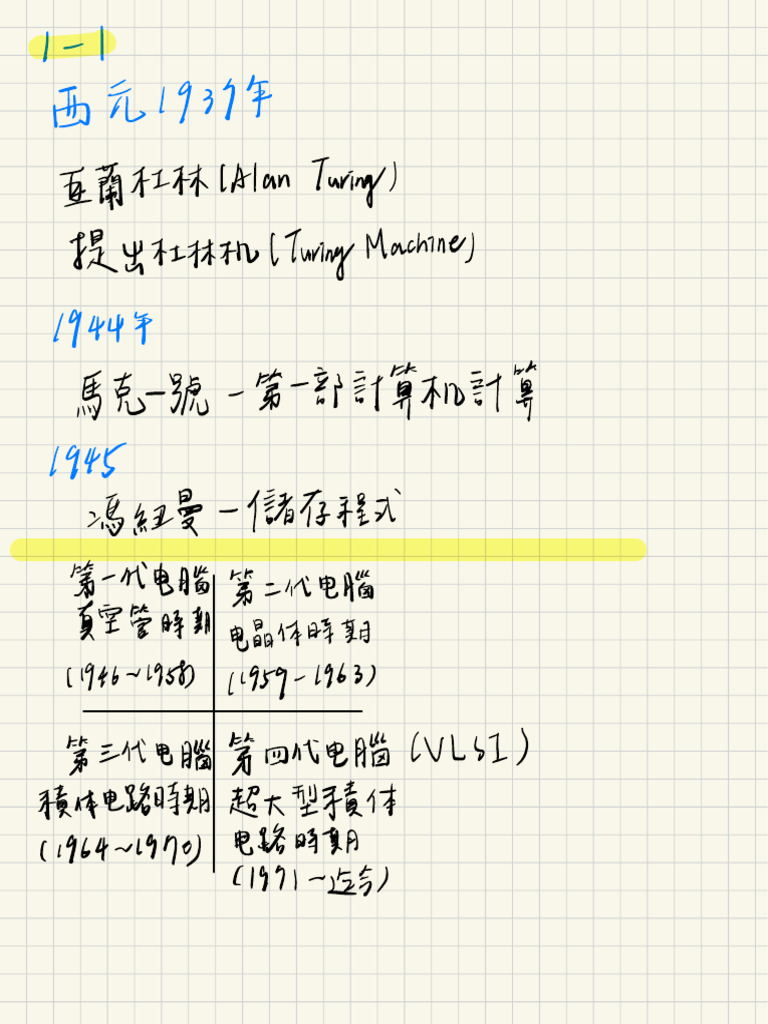 1-1
西元1937年
亚蘭杜林(Alan Turing)
提出杜林机(Turing Machine)
1944年
馬克一號-第一部計算机計算
1945
馮紐曼-儲存程式
第一代电腦
真空管時期
(1946~1958)
第二代电腦
电晶体時期
(1959-1963)
第三代电腦
積体电路時期
(1964~1970)
第四代电腦(VLSI)
超大型積体
电路時期
(1971~迄今)